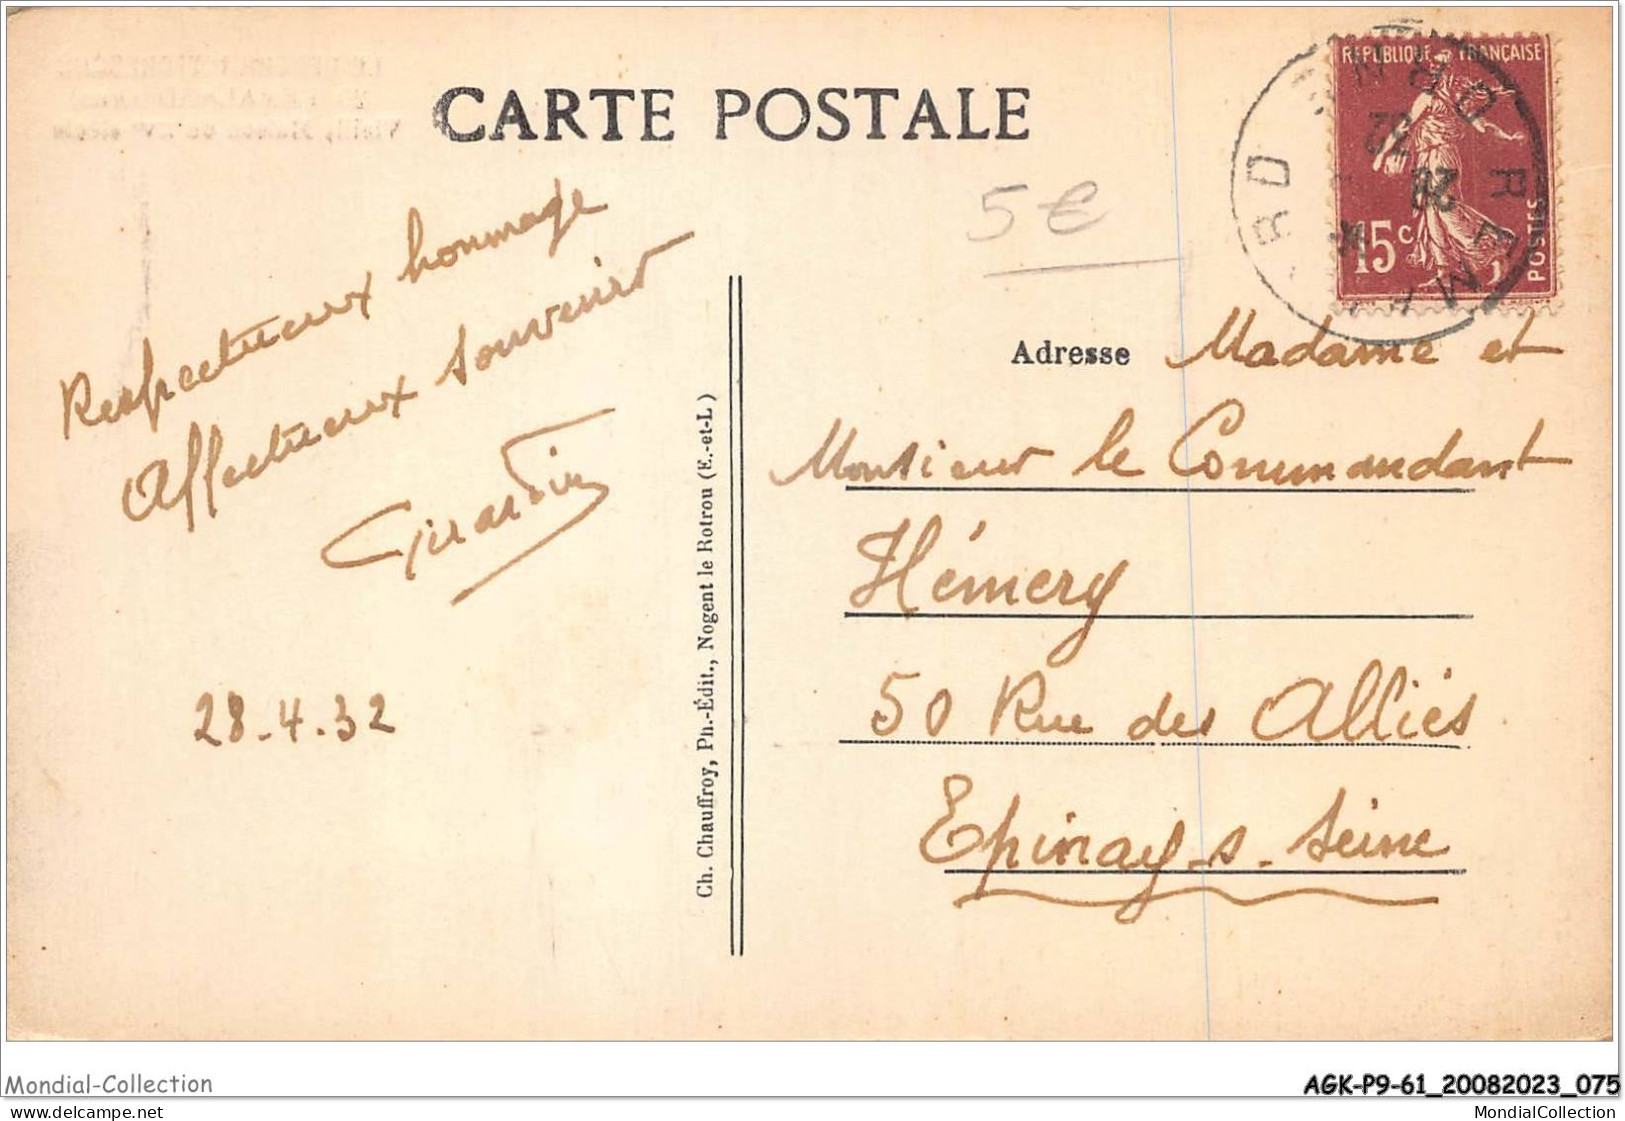 CARTE POSTALE
RÉPUBLIQUE FRANÇAISE
15c
POSTES
28
32
5€
Respectueux hommage
Affectueux souvenir
Girardin
28.4.32
Ch. Chauffroy, Ph.-Édit., Nogent le Rotrou (E.-et-L.)
Adresse Madame et
Monsieur le Commandant
Hémery
50 Rue des Alliés
Epinay-s-Seine
Mondial-Collection
AGK-P9-61_20082023_075
www.delcampe.net
MondialCollection